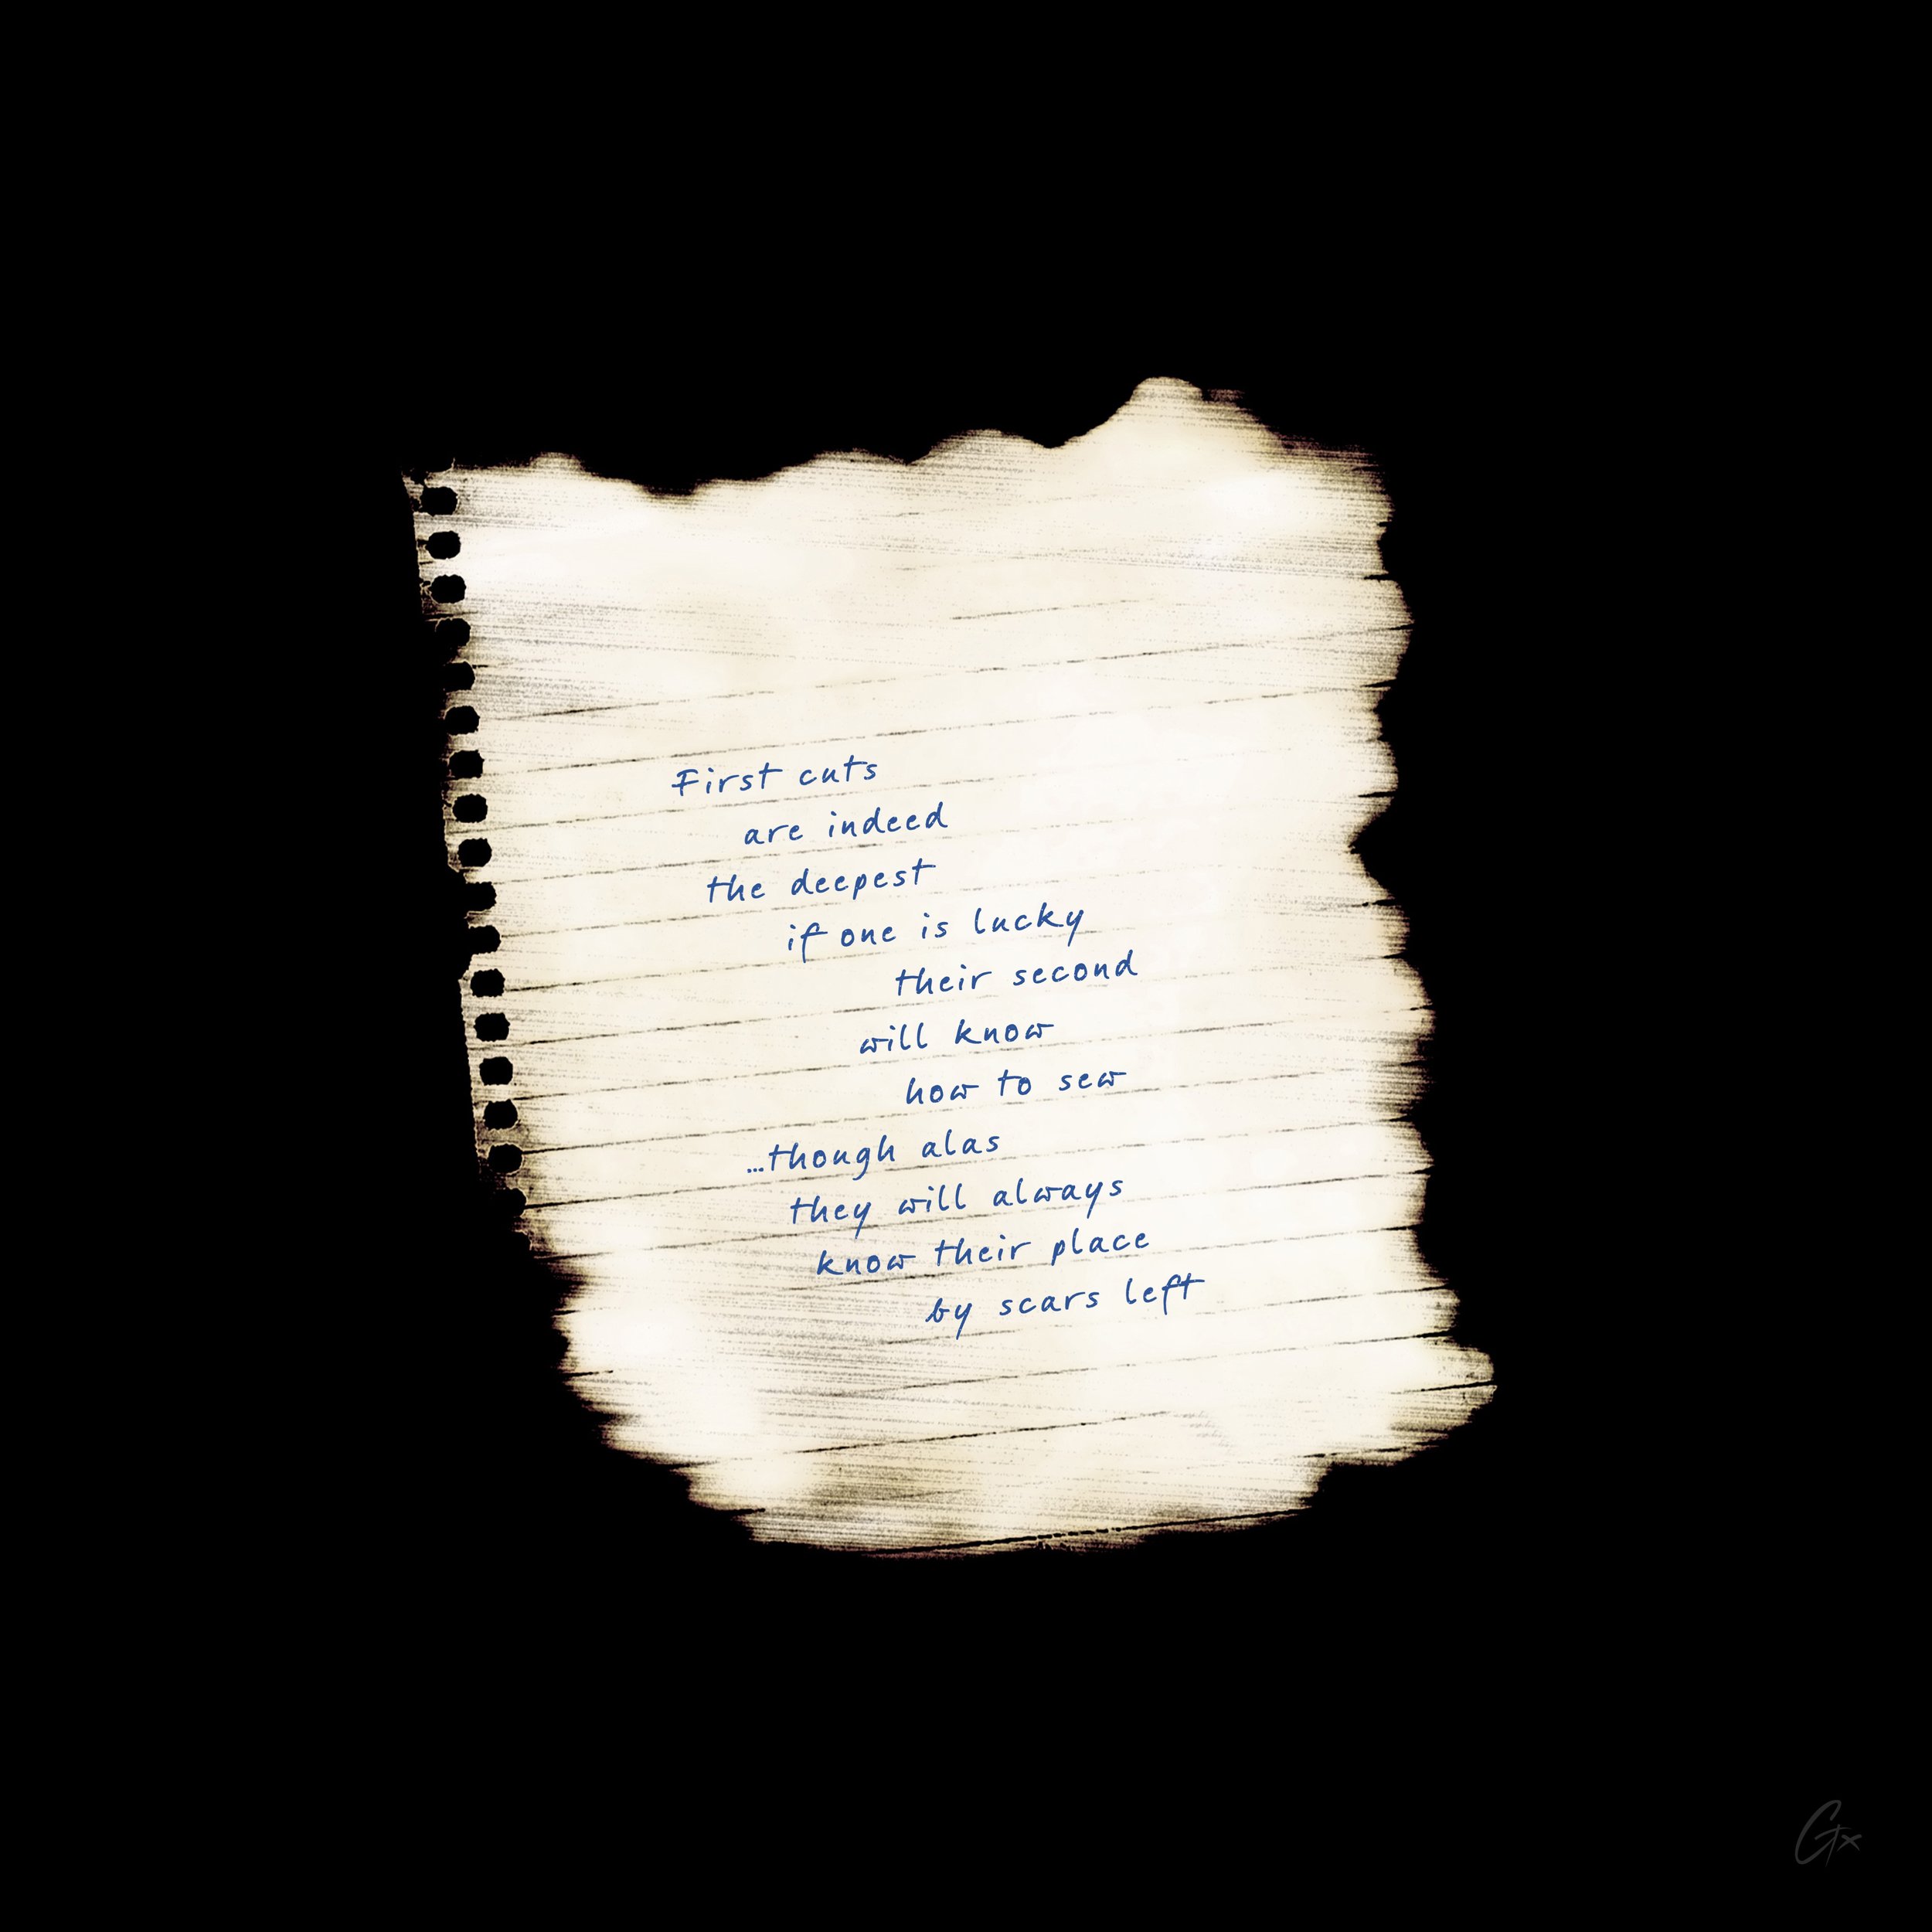 First cuts
are indeed
the deepest
if one is lucky
their second
will know
how to sew
...though alas
they will always
know their place
by scars left
Gx